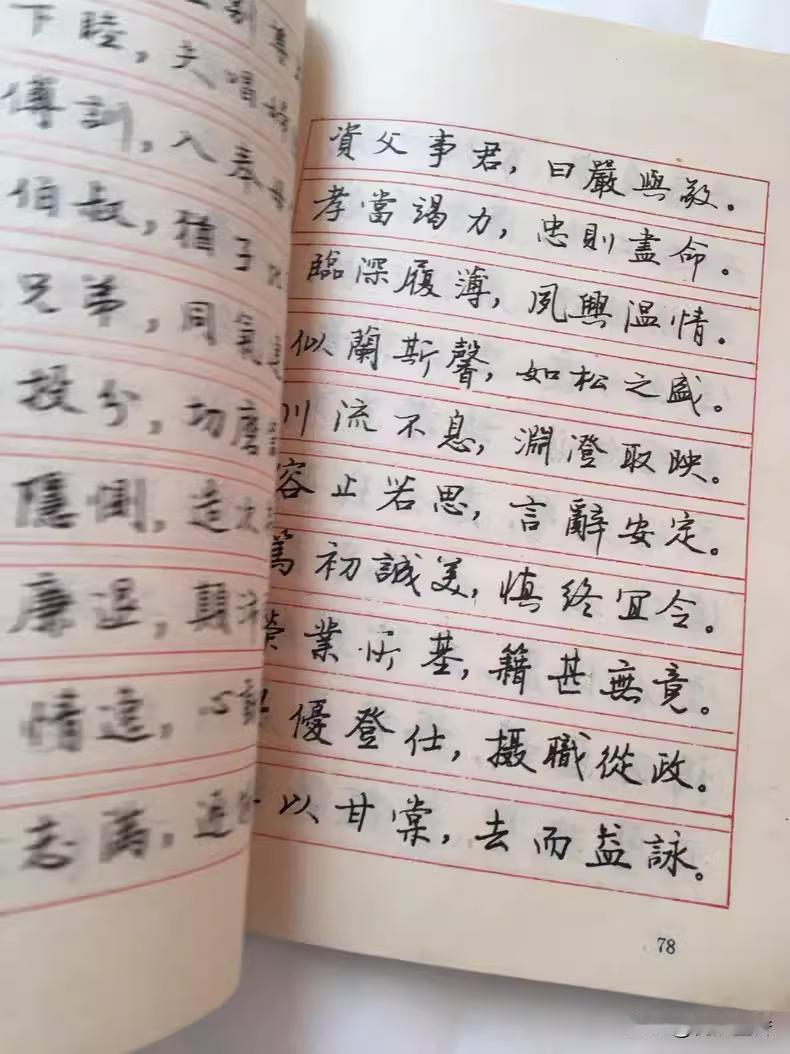 別尊
下睦，夫唱婦
傅訓，入奉母
伯叔，猶子比
兄弟，同氣連
投分，切磨
隱惻，造次
廉退，顛沛
情逸，心動
志滿，逐物
資父事君，曰嚴與敬。
孝當竭力，忠則盡命。
臨深履薄，夙興温情。
似蘭斯馨，如松之盛。
川流不息，淵澄取映。
容止若思，言辭安定。
篤初誠美，慎終宜令。
榮業所基，籍甚無竟。
優登仕，摄職從政。
以甘棠，去而益詠。
78